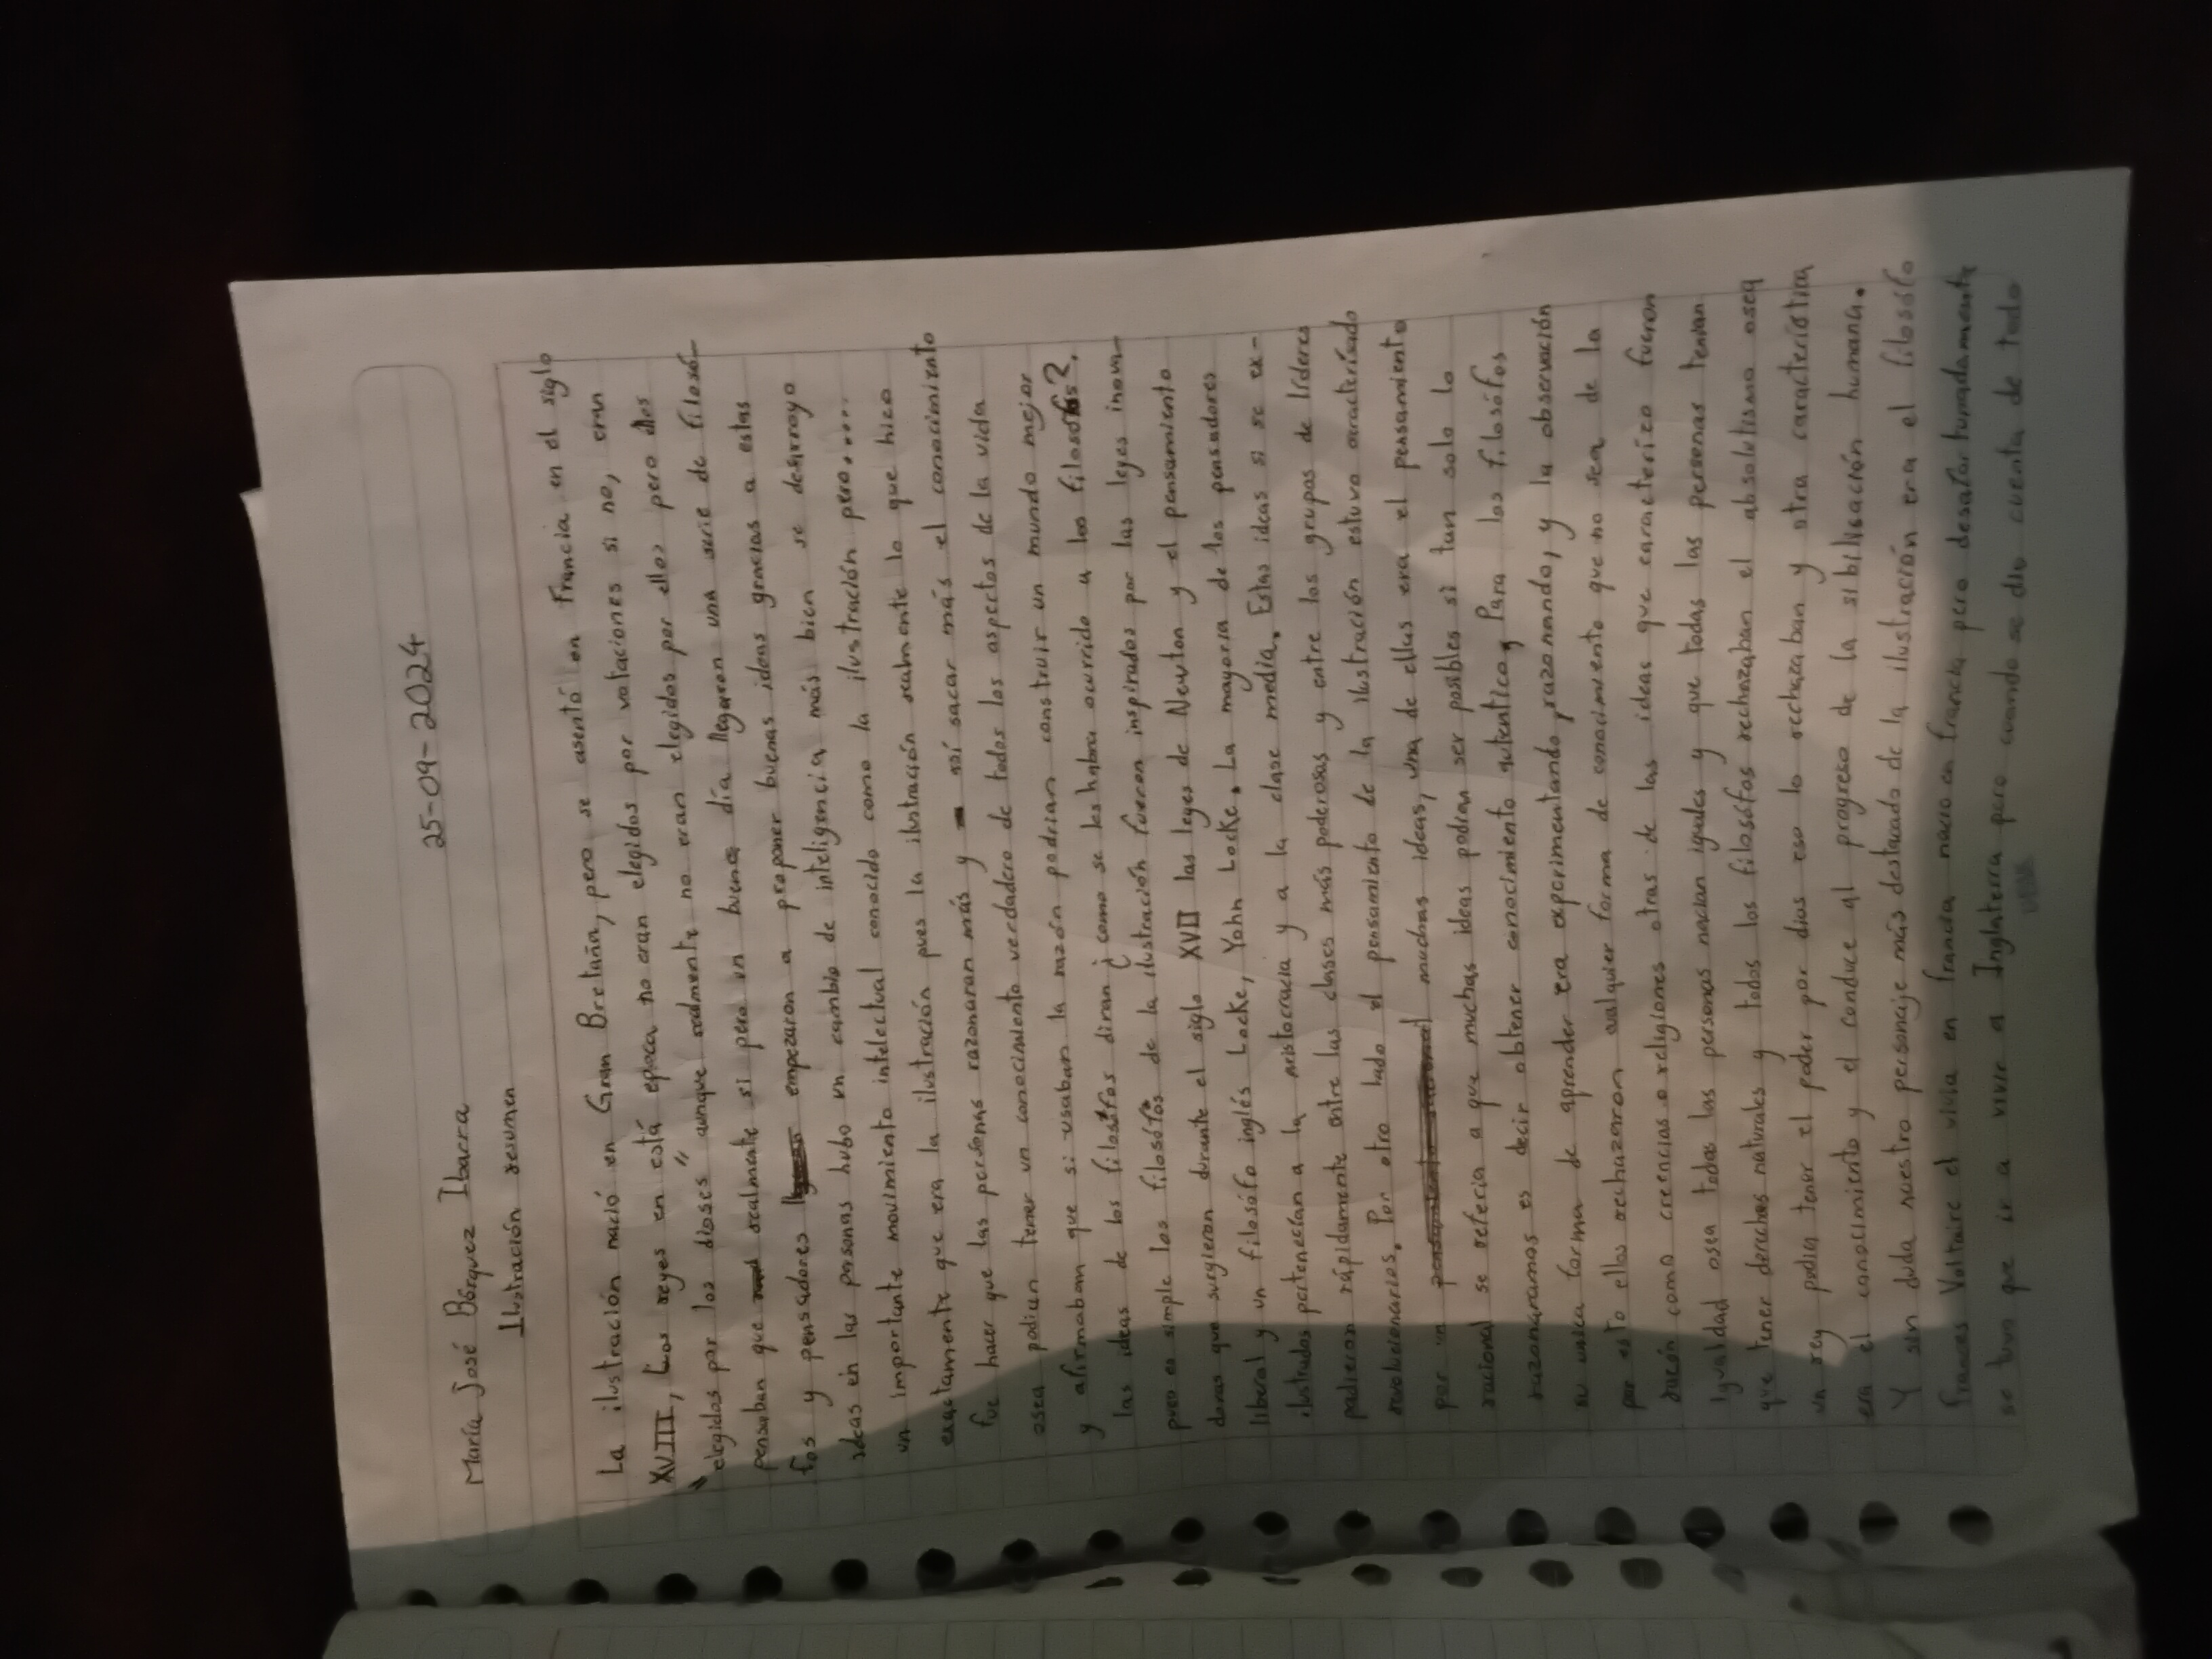 25-09-2024
María José Bórquez Ibarra
Ilustración resumen
La ilustración nació en Gran Bretaña, pero se asentó en Francia en el siglo
XVIII, Los reyes en está epoca no eran elegidos por votaciones si no, eran
elegidos por los dioses" aunque realmente no eran elegidos por ellos pero ellos
pensaban que realmente si pero un buen día llegaron una serie de filosó-
fos y pensadores empezaron a proponer buenas ideas gracias a estas
ideas en las pasonas hubo un cambio de inteligencia más bien se desarroyo
un importante movimiento intelectual conocido como la ilustración pero.....
exactamente que era la ilustración pues la ilustración realmente lo que hizo
fue hacer que las personas razonaran más y así sacar más el conocimiento
osea podian tener un conocimiento verdadero de todos los aspectos de la vida
y afirmaban que si usaban la razón podrian construir un mundo mejor
las ideas de los filosófos diran ¿como se les habra ocurrido a los filosofos?.
pues es simple los filosófos de la ilustración fueron inspirados por las leyes inova-
doras que surgieron durante el siglo XVII las leyes de Newton y el pensamiento
liberal y un filosófo inglés Locke, Yohn Locke. La mayoria de los pensadores
ilustrados pertenecian a la aristocracia y a la clase media. Estas ideas si se ex-
padieron rápidamente entre las clases más poderosas y entre los grupos de líderes
revolucionarios. Por otro lado el pensamiento de la ilustración estuvo caracterisado
por un muchas ideas, una de ellas era el pensamiento
racional se referia a que muchas ideas podian ser posibles si tan solo lo
razonaramos es decir obtener conocimiento autentico, Para los filosófos
su unica forma de aprender era experimentando, razonando, y la observación
por esto ellos rechazaron cualquier forma de conocimiento que no sea de la
razón como creencias o religiones otras de las ideas que caracterizo fueron
Igualdad osea todas las personas nacian iguales y que todas las personas tenian
que tener derechos naturales y todos los filosófos rechazaban el absolutismo osea
un rey podia tener el poder por dios eso lo rechazaban y otra caracteristica
era el conocimiento y el conduce al progreso de la sibilisación humana.
Y sin duda nuestro personaje más destacado de la ilustración era el filosófo
frances Voltaire el vivia en francia nacio en francia pero desafortunadamente
se tuvo que ir a vivir a Inglaterra pero cuando se dio cuenta de todo